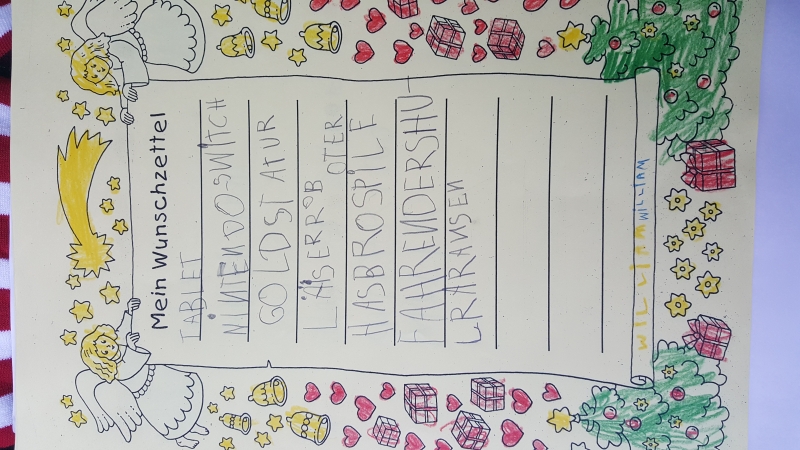 Mein Wunschzettel
TABLET
NINTENDO-SWITCH
GOLDSTATUR
LÄSERROBOTER
HASBROSPILE
FAHRENDERSHU-
LRARANSEN
WILLIAM WILLIAM